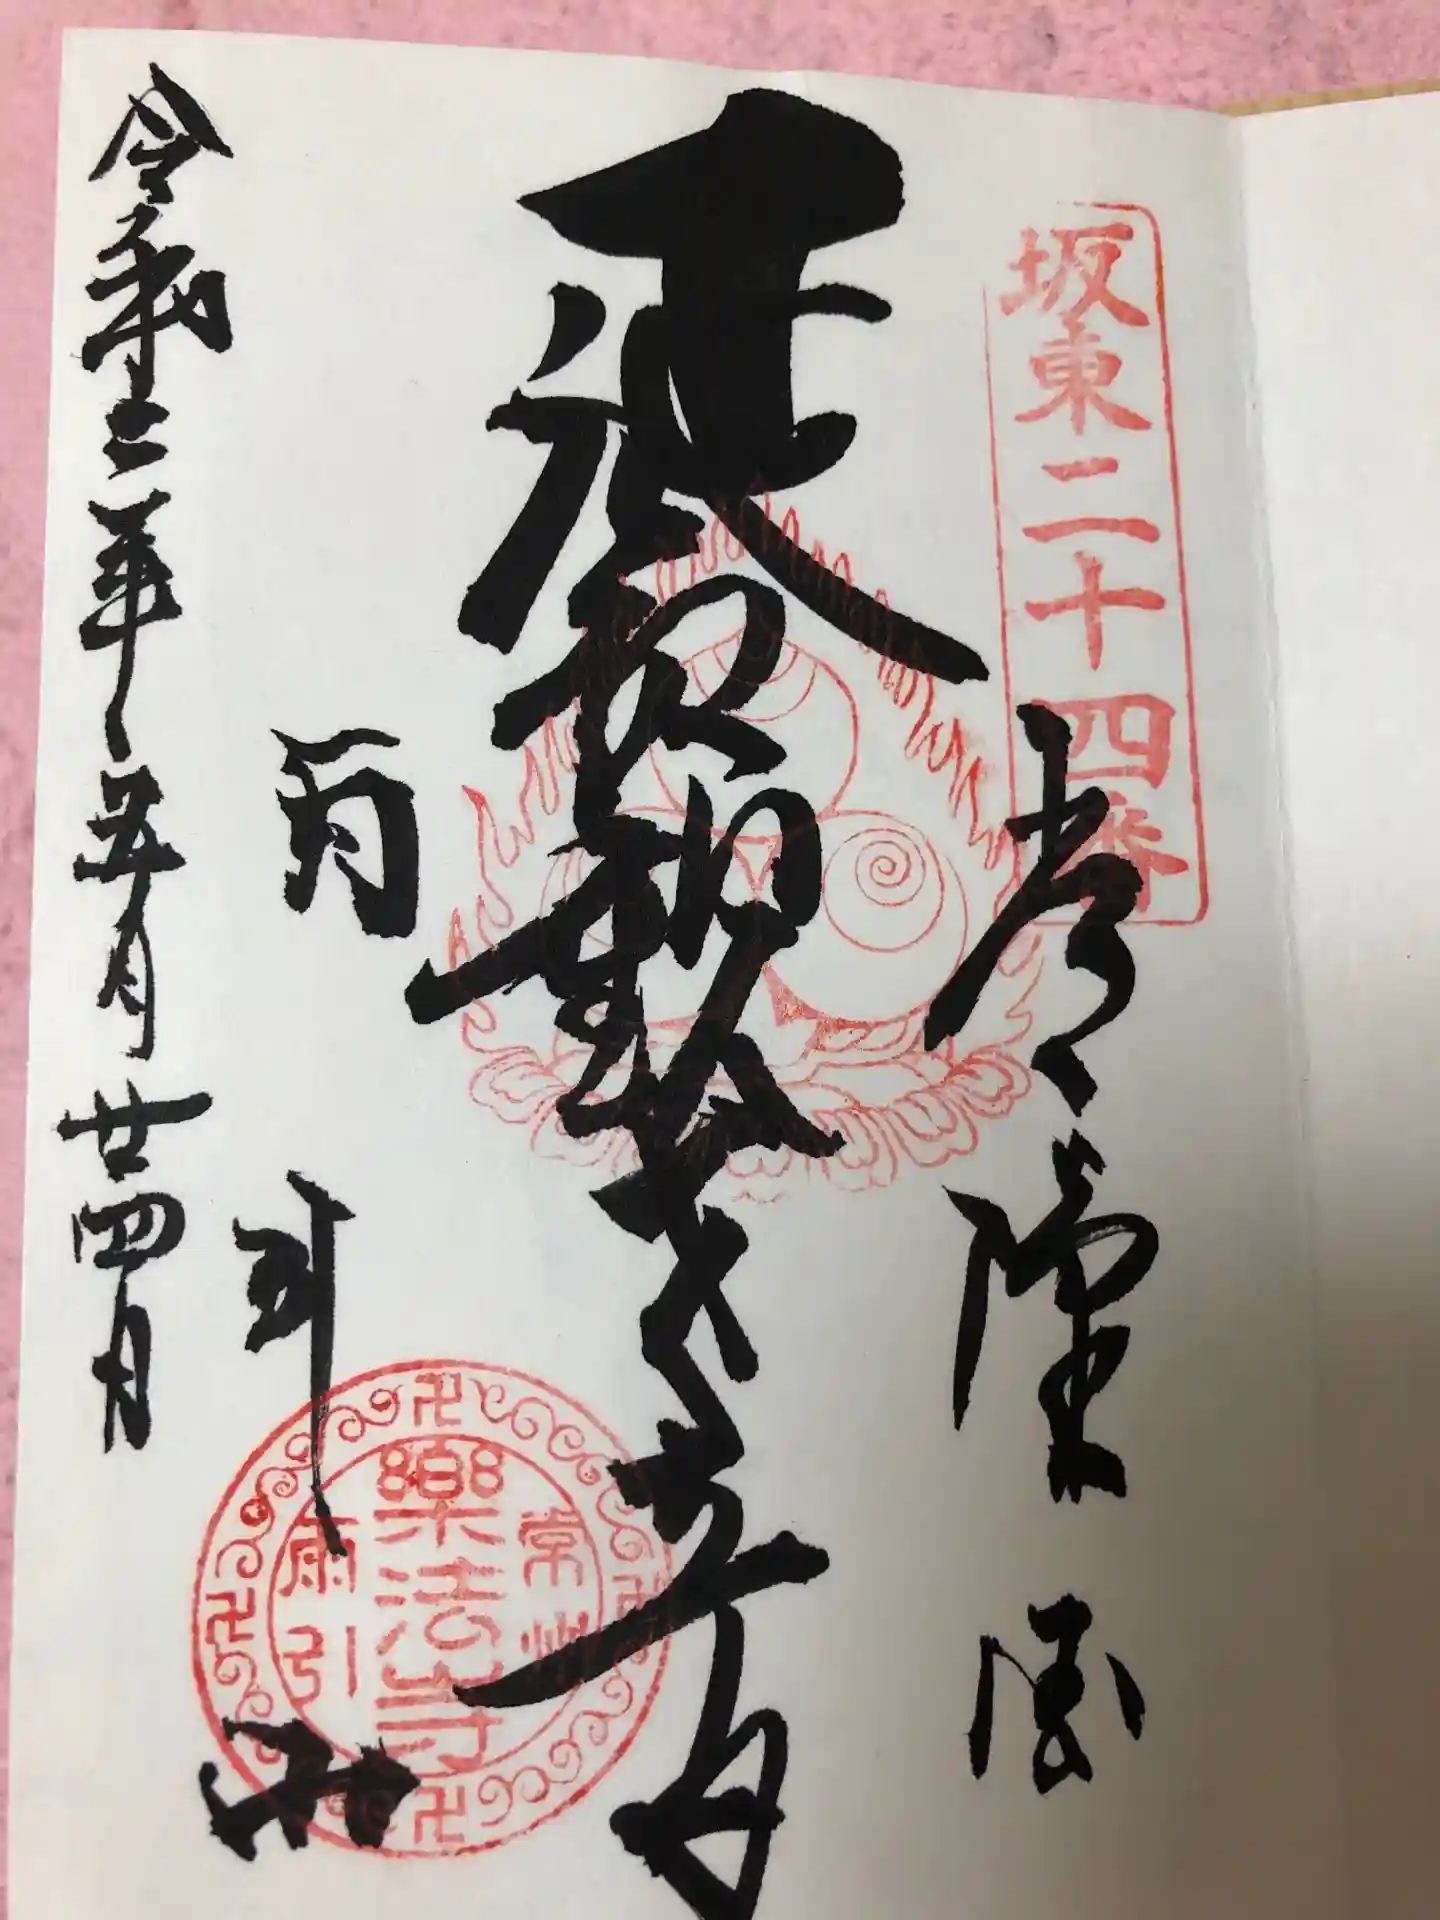 坂東二十四番
常陸国
延命観世音
雨引山
令和三年五月廿四日
常州
樂法寺
雨引